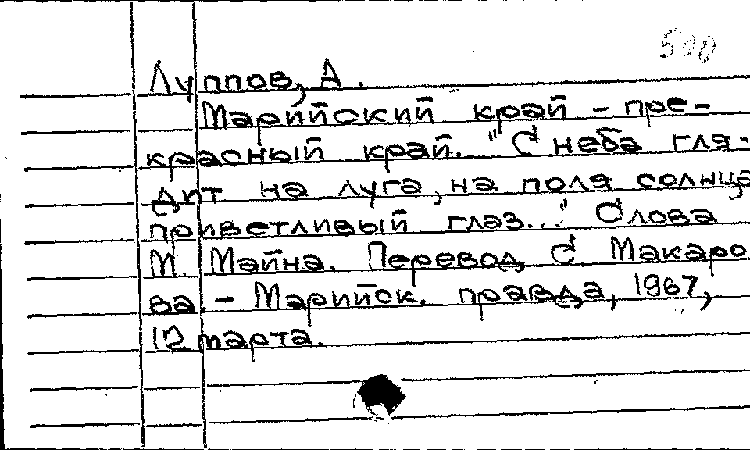 500
Луппов, А.
Марийский край - пре-
красный край. "С неба гля-
дит на луга, на поля солнца
приветливый глаз..." Слова
М. Майна. Перевод С. Макаро
ва. - Марийск. правда, 1967,
12 марта.